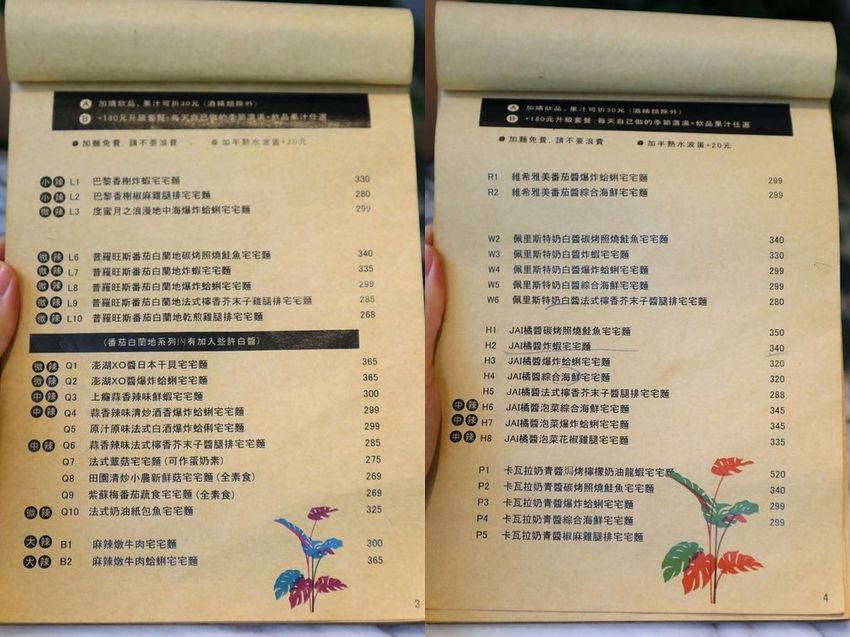 A 加購飲品、果汁可折30元（酒精類除外）
B +180元升級套餐：每天自己做的季節濃湯+飲品果汁任選
加麵免費，請不要浪費 加半熟水波蛋+20元
小辣 L1 巴黎香榭炸蝦宅宅麵 330
小辣 L2 巴黎香榭椒麻雞腿排宅宅麵 280
微辣 L3 度蜜月之浪漫地中海爆炸蛤蜊宅宅麵 299
微辣 L6 普羅旺斯番茄白蘭地碳烤照燒鮭魚宅宅麵 340
微辣 L7 普羅旺斯番茄白蘭地炸蝦宅宅麵 335
微辣 L8 普羅旺斯番茄白蘭地爆炸蛤蜊宅宅麵 299
微辣 L9 普羅旺斯番茄白蘭地法式檸香芥末子雞腿排宅宅麵 285
微辣 L10 普羅旺斯番茄白蘭地乾煎雞腿排宅宅麵 268
（番茄白蘭地系列內有加入些許白醬）
微辣 Q1 澎湖XO醬日本干貝宅宅麵 365
微辣 Q2 澎湖XO醬爆炸蛤蜊宅宅麵 365
中辣 Q3 上癮蒜香辣味鮮蝦宅宅麵 300
中辣 Q4 蒜香辣味清炒酒香爆炸蛤蜊宅宅麵 299
Q5 原汁原味法式白酒爆炸蛤蜊宅宅麵 299
中辣 Q6 蒜香辣味法式檸香芥末子醬腿排宅宅麵 285
Q7 法式蕈菇宅宅麵（可作蛋奶素） 275
Q8 田園清炒小農新鮮菇宅宅麵（全素食） 269
Q9 紫蘇梅番茄蔬食宅宅麵（全素食） 269
微辣 Q10 法式奶油紙包魚宅宅麵 325
大辣 B1 麻辣燉牛肉宅宅麵 300
大辣 B2 麻辣燉牛肉蛤蜊宅宅麵 365
3
A 加購飲品、果汁可折30元（酒精類除外）
B +180元升級套餐：每天自己做的季節濃湯+飲品果汁任選
加麵免費，請不要浪費 加半熟水波蛋+20元
R1 維希雅美番茄醬爆炸蛤蜊宅宅麵 299
R2 維希雅美番茄醬綜合海鮮宅宅麵 299
W2 佩里斯特奶白醬碳烤照燒鮭魚宅宅麵 340
W3 佩里斯特奶白醬炸蝦宅宅麵 330
W4 佩里斯特奶白醬爆炸蛤蜊宅宅麵 299
W5 佩里斯特奶白醬綜合海鮮宅宅麵 299
W6 佩里斯特奶白醬法式檸香芥末子醬腿排宅宅麵 280
H1 JAI橘醬碳烤照燒鮭魚宅宅麵 350
H2 JAI橘醬炸蝦宅宅麵 340
H3 JAI橘醬爆炸蛤蜊宅宅麵 320
H4 JAI橘醬綜合海鮮宅宅麵 320
H5 JAI橘醬法式檸香芥末子醬腿排宅宅麵 288
中辣 H6 JAI橘醬泡菜綜合海鮮宅宅麵 345
中辣 H7 JAI橘醬泡菜爆炸蛤蜊宅宅麵 345
中辣 H8 JAI橘醬泡菜花椒雞腿宅宅麵 335
P1 卡瓦拉奶青醬焗烤檸檬奶油龍蝦宅宅麵 520
P2 卡瓦拉奶青醬碳烤照燒鮭魚宅宅麵 340
P3 卡瓦拉奶青醬爆炸蛤蜊宅宅麵 299
P4 卡瓦拉奶青醬綜合海鮮宅宅麵 299
P5 卡瓦拉奶青醬椒麻雞腿排宅宅麵
4